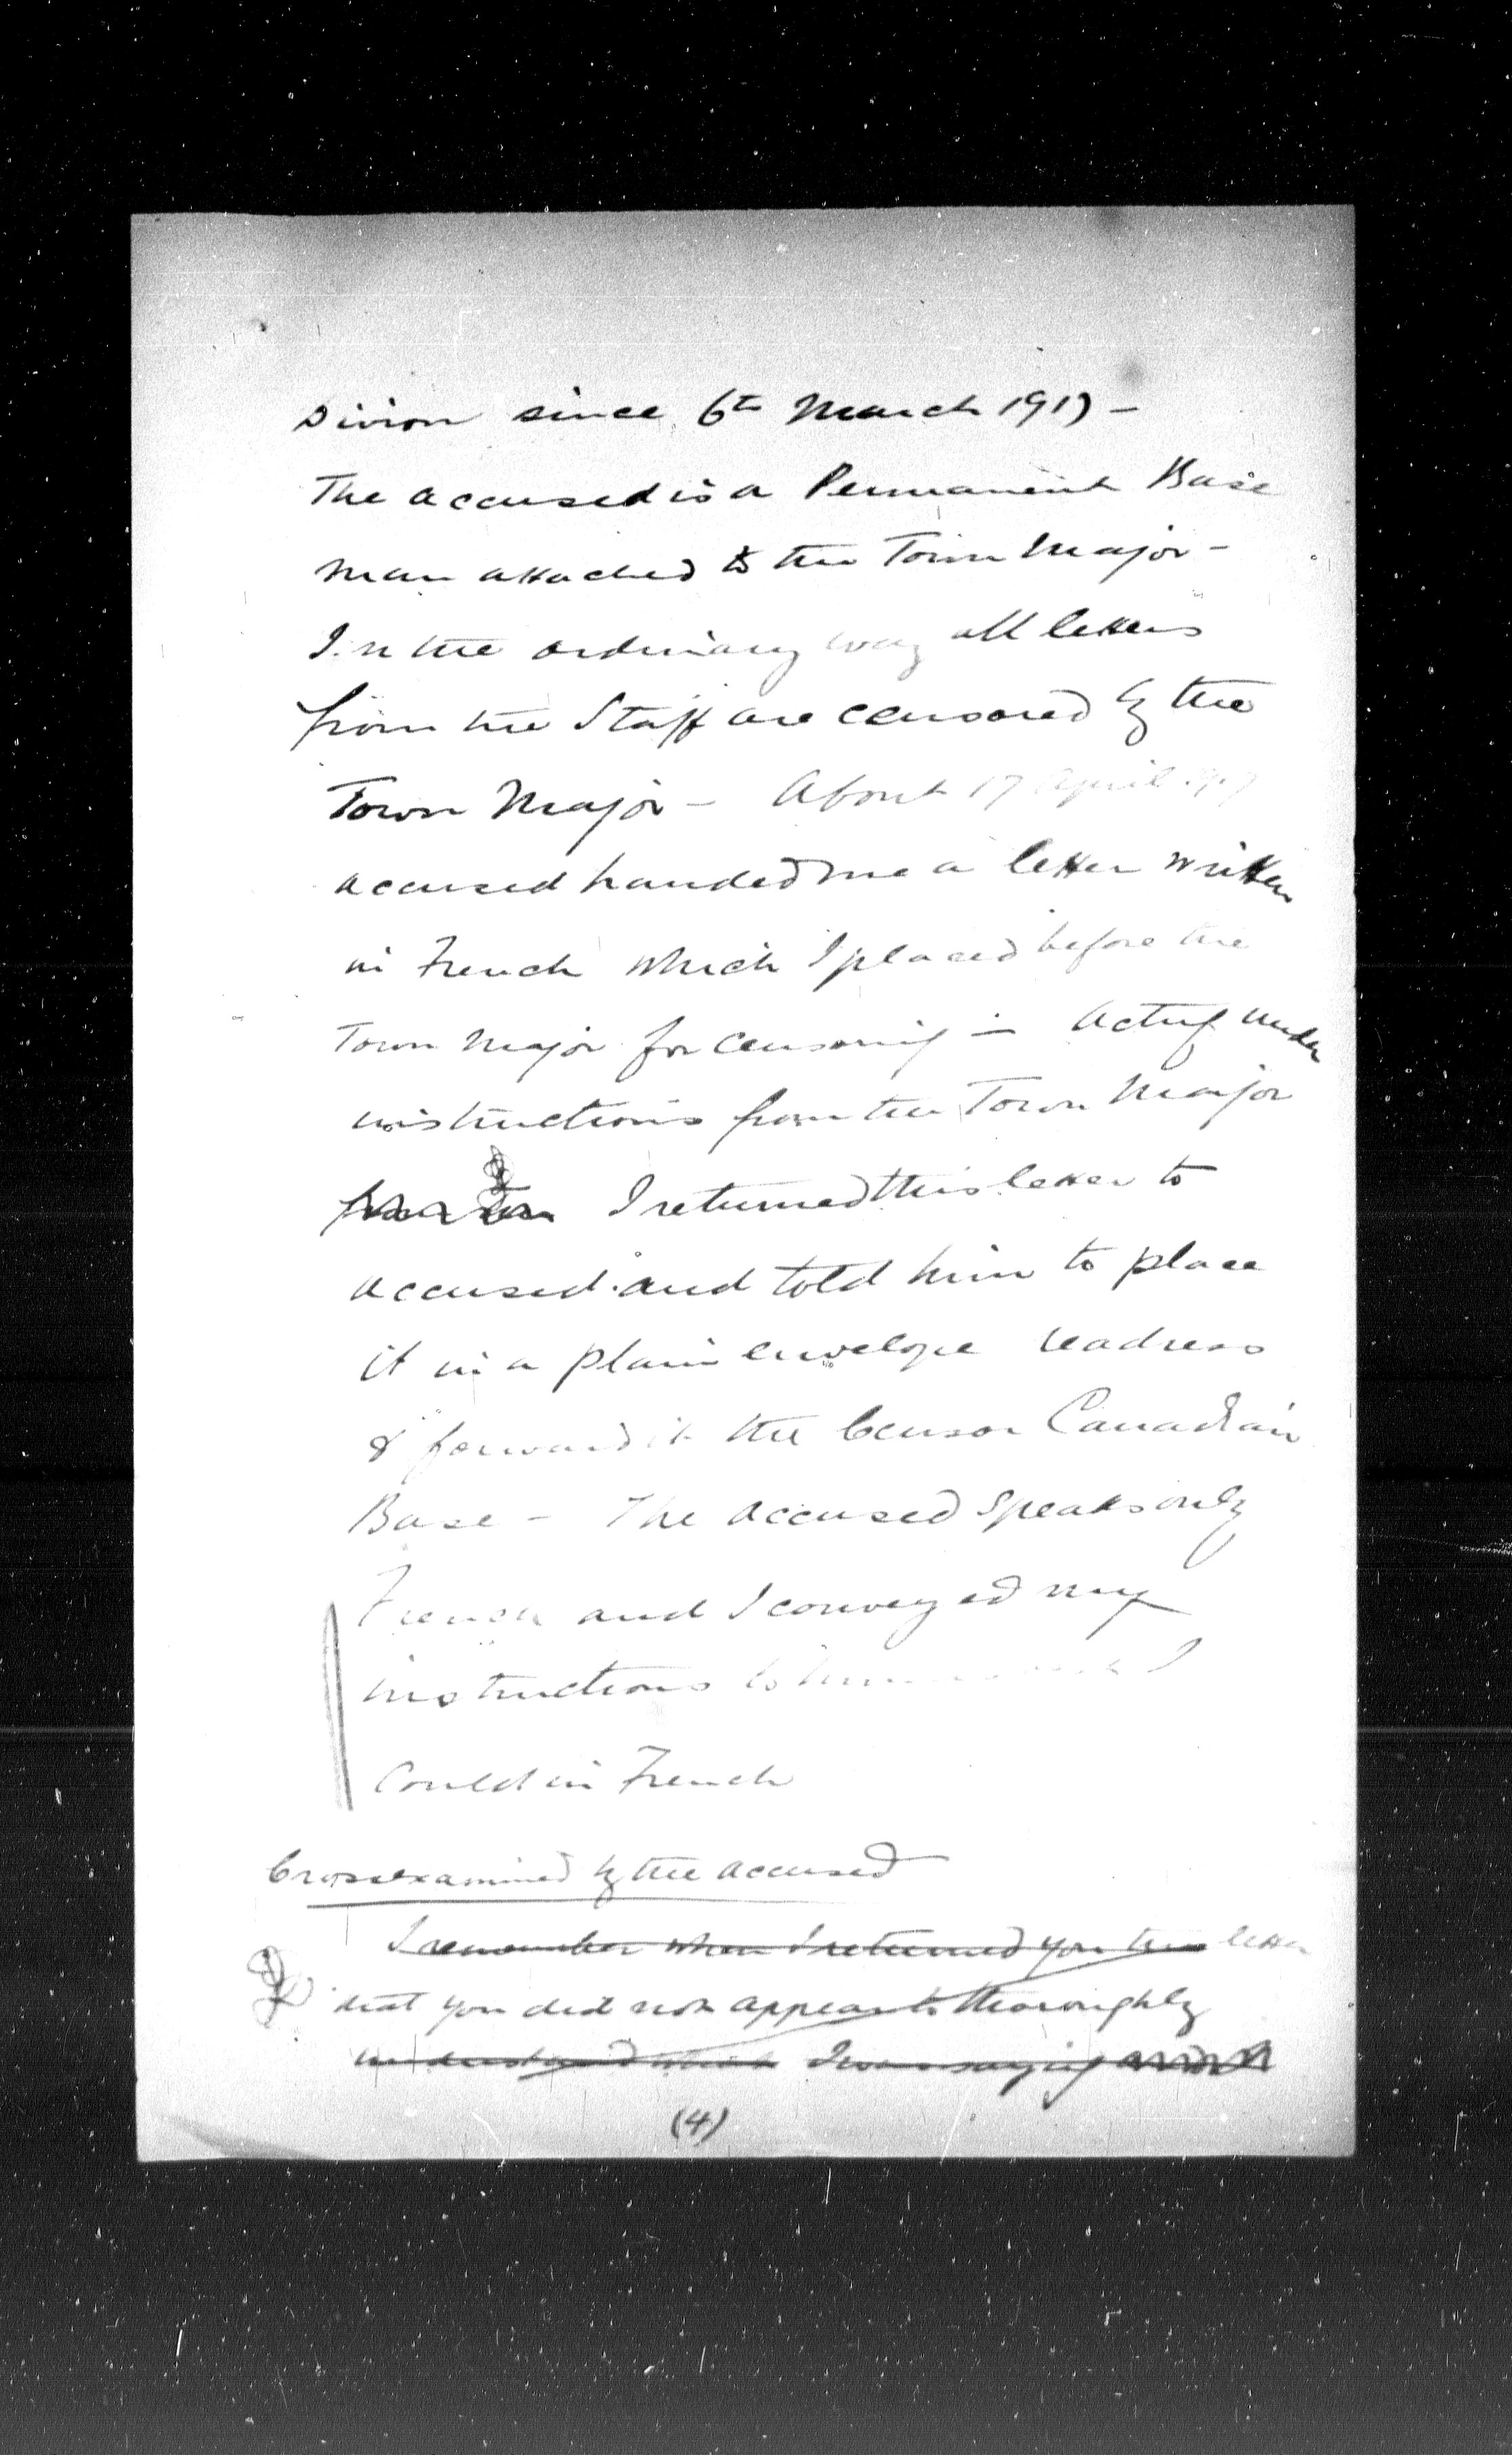 Divion since 6th March 1917 -
The accused is a Permanent Base
Man attached to the Town Major -
In the ordinary way all letters
from the Staff are censored by the
Town Major - About 17 April 1917
accused handed me a letter written
in French which I placed before the
Town Major for censoring - Acting under
instructions from the Town Major
I returned this letter to
accused and told him to place
it in a plain envelope readress
& forward it the Censor Canadian
Base - The accused speaks only
French and I conveyed my
instructions to him I
could in French
Cross examined by the accused
I remember when I returned you this letter
that you did not appear to thoroughly
understand what I was saying
(4)